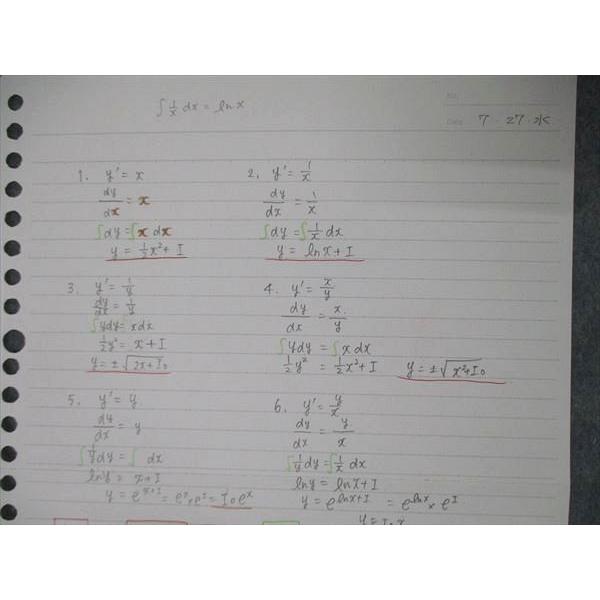 ∫ 1/x dx = ln x
No.
Date 7・27・水
1. y' = x
dy/dx = x
∫dy = ∫x dx
y = 1/2 x² + I
2. y' = 1/x
dy/dx = 1/x
∫dy = ∫ 1/x dx
y = ln x + I
3. y' = 1/y
dy/dx = 1/y
∫ydy = ∫xdx
1/2 y² = x + I
y = ±√(2x + I₀)
4. y' = x/y
dy/dx = x/y
∫ydy = ∫x dx
1/2 y² = 1/2 x² + I
y = ±√(x² + I₀)
5. y' = y
dy/dx = y
∫ 1/y dy = ∫ dx
ln y = x + I
y = e^(x+I) = e^x × e^I = I₀e^x
6. y' = y/x
dy/dx = y/x
∫ 1/y dy = ∫ 1/x dx
ln y = ln x + I
y = e^(ln x + I) = e^(ln x) × e^I
y = I₀x